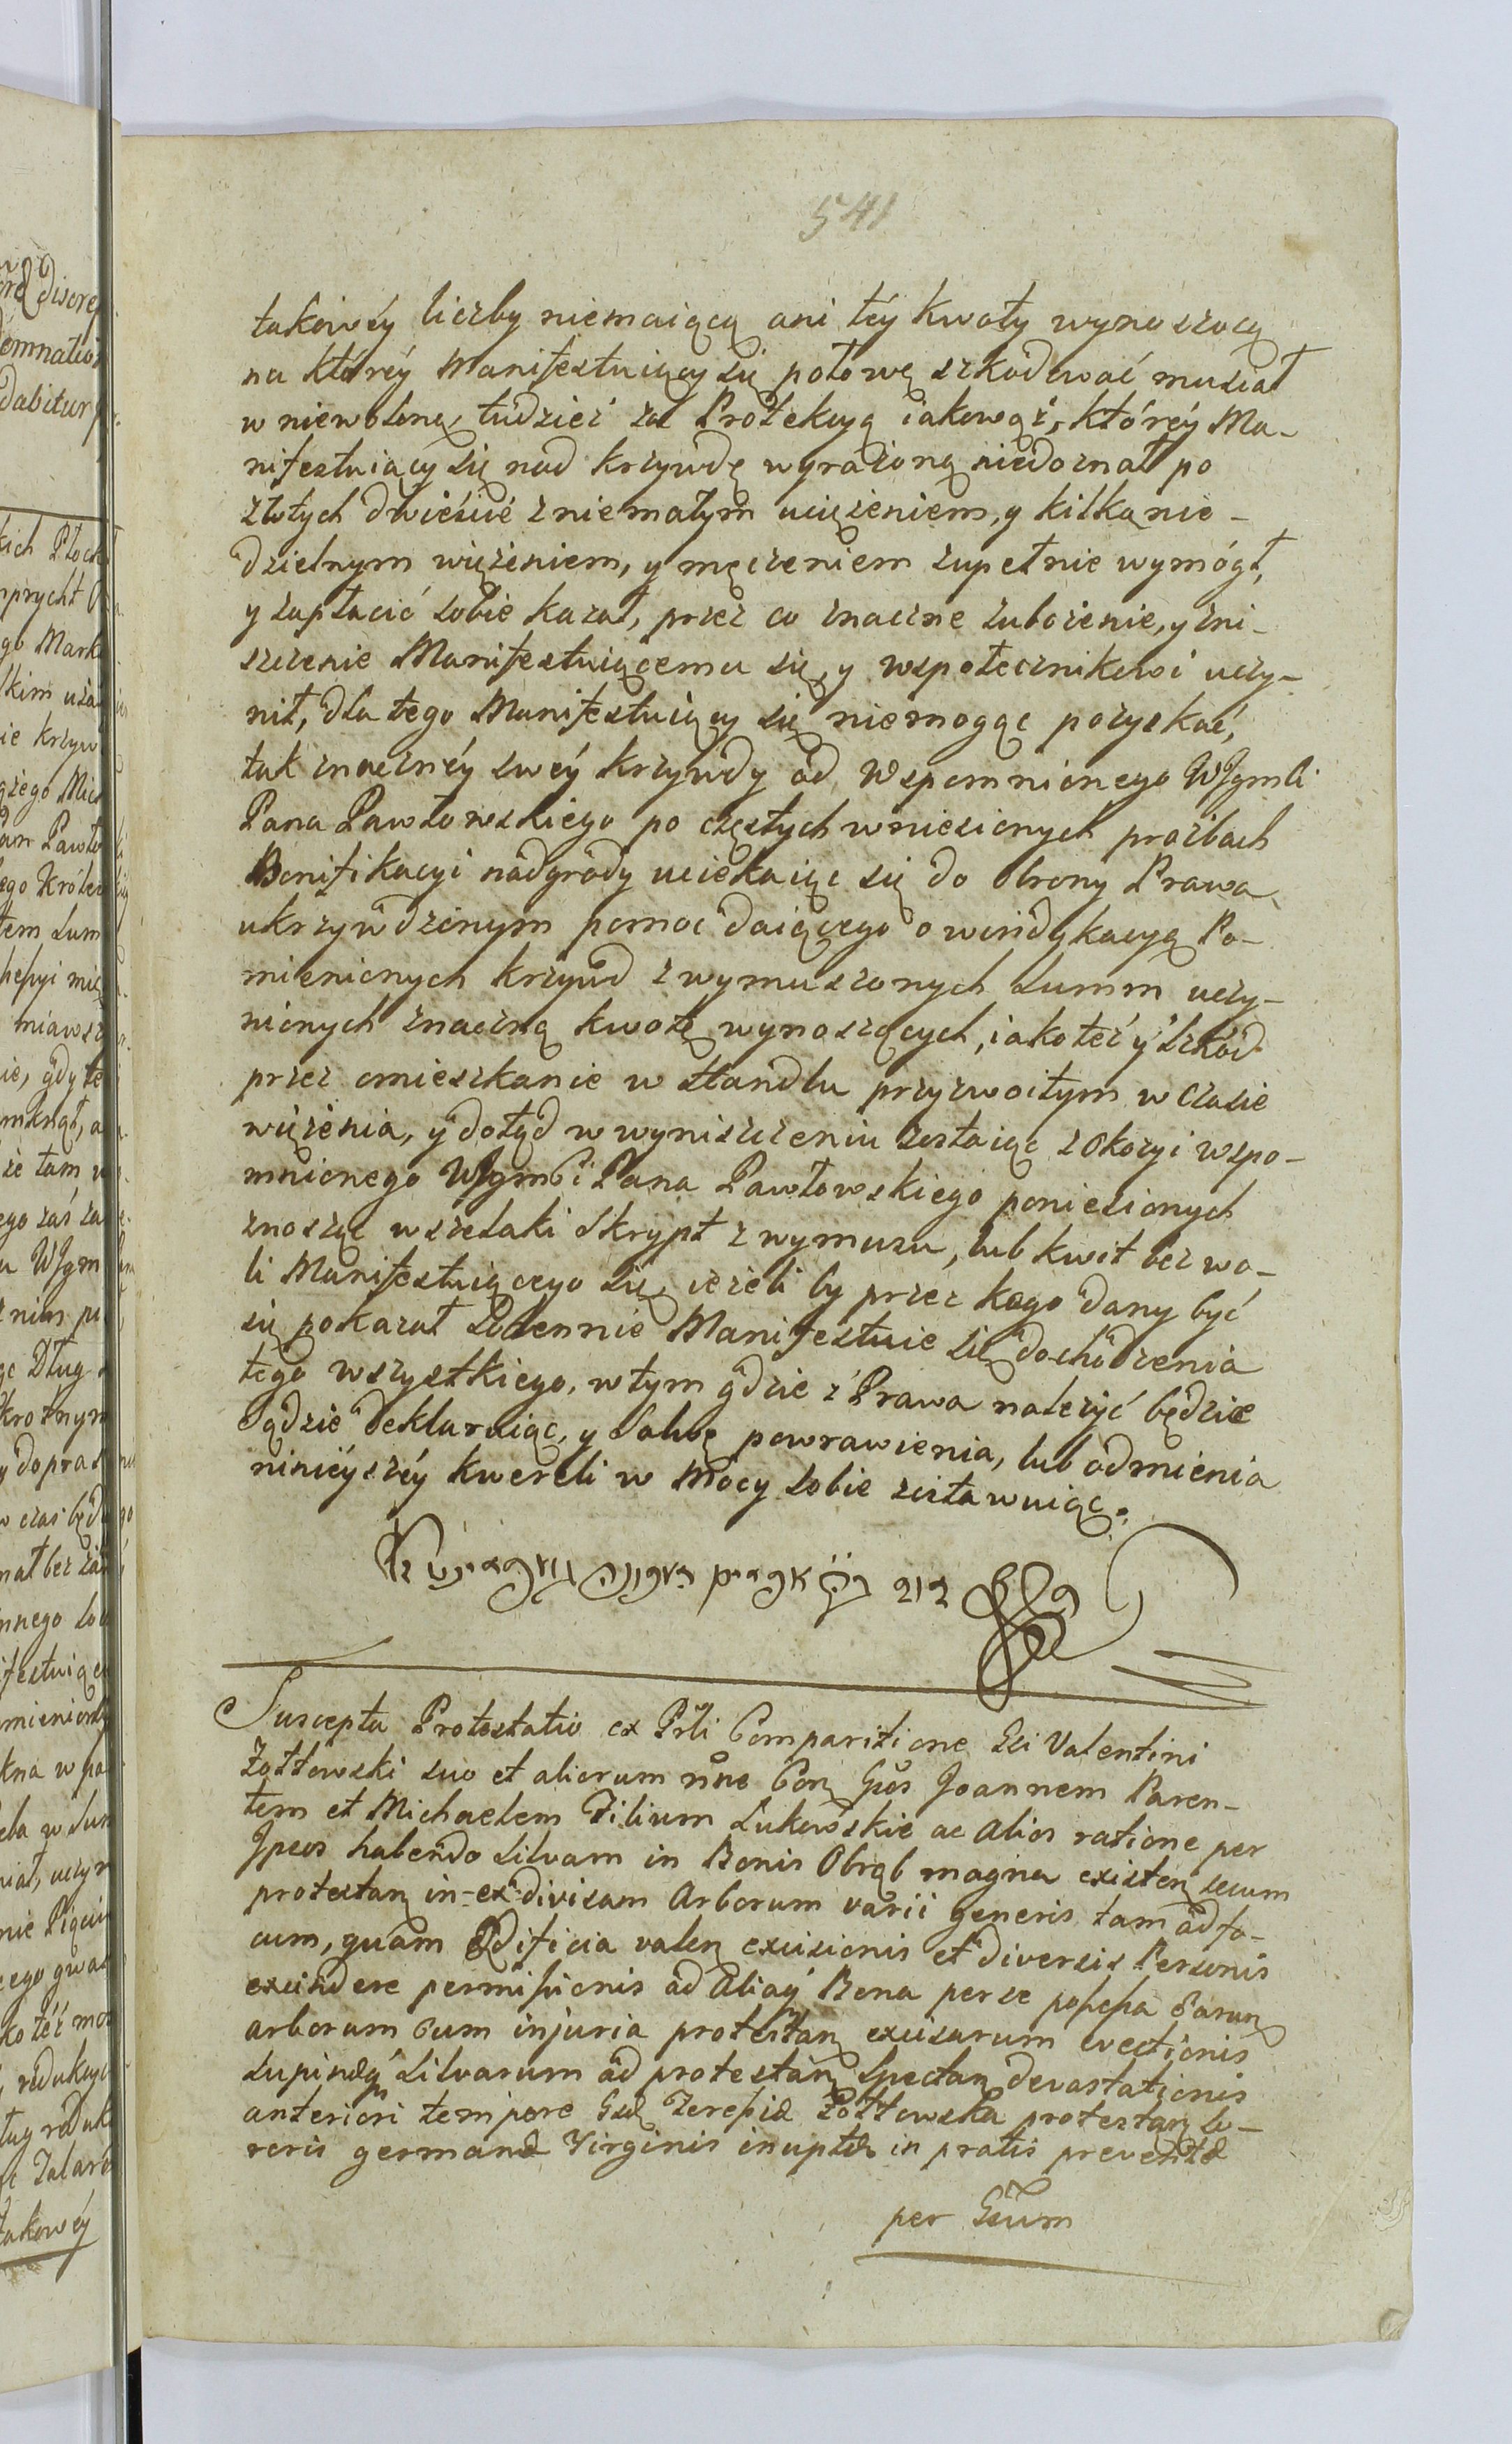 541
takowéy liczby niemaiącą ani téy kwoty wynoszocą
na któréy Manifestuiący się połowę szkodować musiał
w niewoloną, tudzież za Protekcyą iakowąż, któréy Ma-
nifestuiący się nad krzywdę wyrażoną niedoznał po
złotych dwieście z niemałym uciążeniem, y kilkanie-
dzielnym więzieniem, y męczeniem zupełnie wymógł,
y zapłacić sobie kazał, przez co znaczne zubożenie, y zni-
szczenie Manifestuiącemu się, y wspołecznikowi uczy-
nił, dla tego Manifestuiący się niemogąc pozyskać,
tak znacznéy swéy krzywdy od Wspomnionego WJgmści
Pana Pawłowskiego po częstych wniesionych prożbach
Bonifikacyi nadgrody uciekaiąc się do Obrony Prawa
ukrzywdzonym pomoc daiącego o windykacyą Po-
mienionych krzywd z wymuszonych Summ uczy-
nionych znaczną kwotę wynoszących, iako też y szkód
przez omieszkanie w Handlu przyzwoitym w Czasie
więzienia, y dotąd w wyniszczeniu zostaiąc z Okazyi wspo-
mnionego WJgmści Pana Pawłowskiego poniesionych
znosząc wszelaki Skrypt z wymuszu, lub kwit bez wo-
li Manifestuiącego się, ieżeli by przez kogo dany być
się pokazał Solennie Manifestuie się dochodzenia
tego wszystkiego, w tym gdzie z Prawa należyć będzie
Sądzie deklaruiąc, y Salwę powrawienia, lub odmienia
ninieyszéy kwereli w Mocy sobie zostawuiąc.
Suscepta Protestatio ex Prli Comparitione Gsi Valentini
Żołtowski suo et aliorum nne Con Gsos Joannem Paren-
tem et Michaelem Filium Łukowskie ac Alios ratione per
Ipsos habendo Silvam in Bonis Obrąb magna existen secum
protestan in-exdivisam Arborum varii generis tam ad fo-
cum, quam Ædificia valen excisionis et diversis Personis
excindere permissionis ad Aliaq Bona per se possessa Earun
arborum cum injuria protestan excisarum evectionis
Supindeq Silvarum ad protestan Spectan devastationis
anteriori tempore Gsæ Teressiæ Żołtowska protestan So-
roris germanæ Virginis inuptæ in pratis preventæ
per Gsum